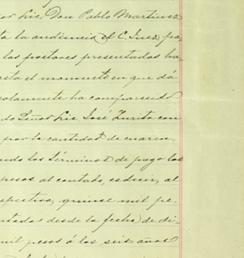 Sor Lic. Don Pablo Martinez
ta la audiencia el C. Juez pa
los postores presentados ha
sta el momento en que dá
solamente ha comparecido
do Señor Lic José Zurita con
por la cantidad de
ndo los términos de pago los
pesos al contado, es decir, al
spectivo, quince mil pe
ntados desde la fecha de di
mil pesos á los seis años